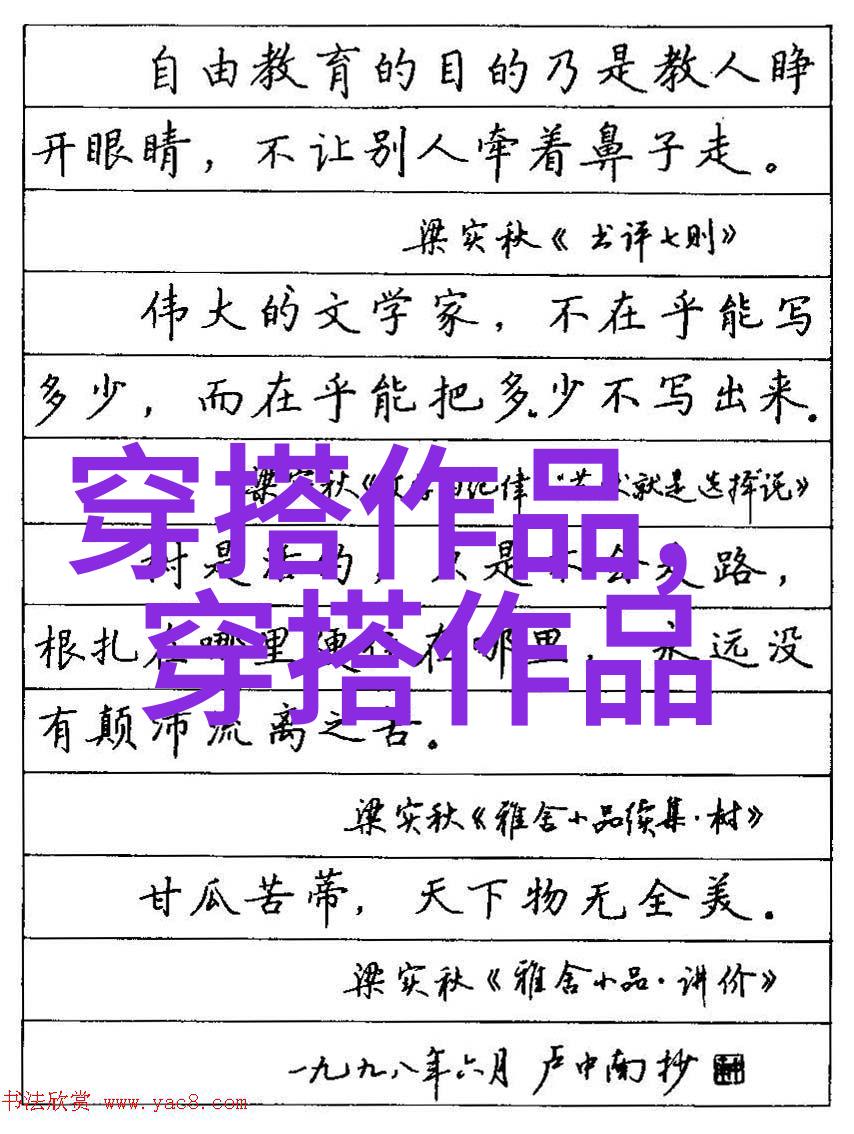 自由教育的目的乃是教人睁
开眼睛，不让别人牵着鼻子走。
梁实秋《书评七则》
伟大的文学家，不在乎能写
多少，而在乎能把多少不写出来.
梁实秋《 就是选择说》
穿搭作品,
树是活的，只是不会走路，
根扎在哪里便住在哪里，永远没
穿搭作品
有颠沛流离之苦。
梁实秋《雅舍小品续集·树》
甘瓜苦蒂，天下物无全美.
梁实秋《雅舍小品·讲价》
一九九八年六月 卢中南抄
书法欣赏 www.yac8.com